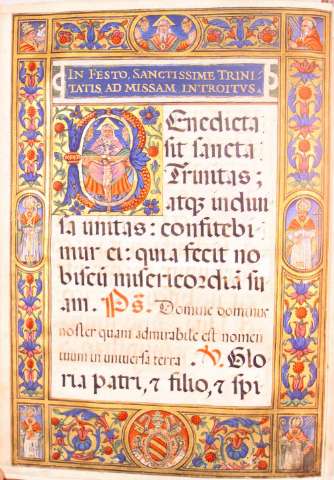 IN FESTO SANCTISSIME TRINI
TATIS AD MISSAM INTROITVS.
Benedicta
sit sancta
Trinitas;
atq; indiui
sa unitas: confitebi
mur ei: quia fecit no
biscū misericordiā su
am. Ps. Domine dominus
noster quam admirabile est nomen
tuum in universa terra. V. Glo
ria patri, ⁊ filio, ⁊ spi